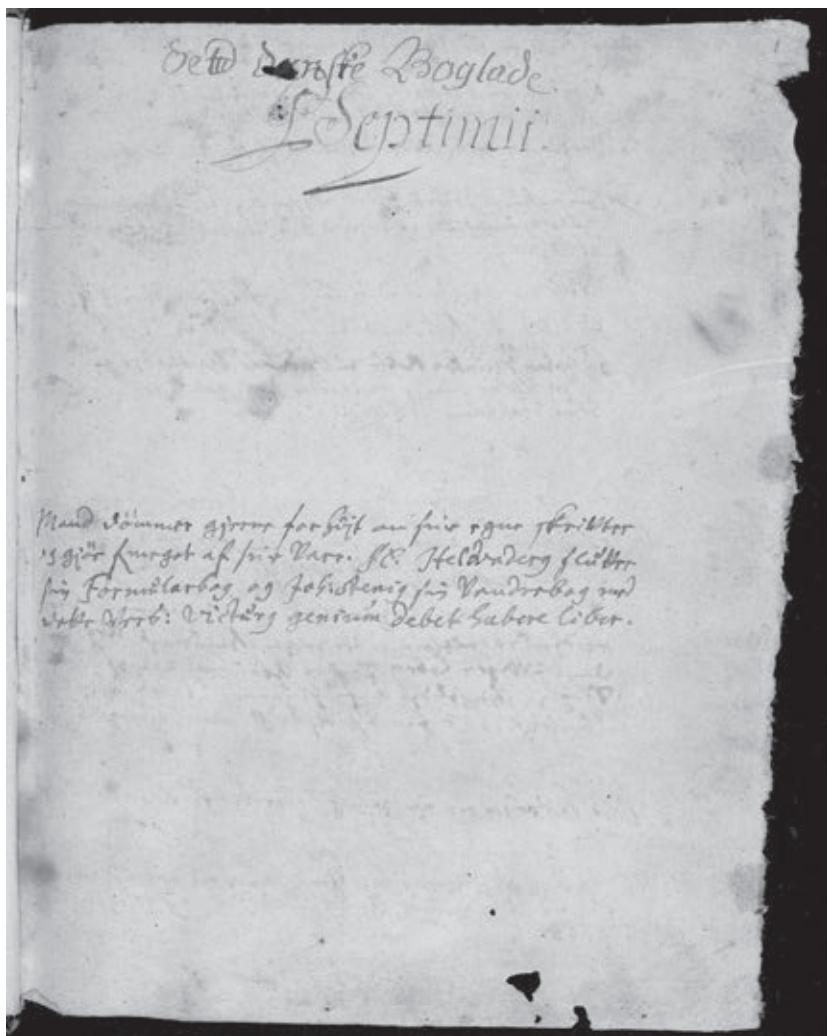 Dend danske Boglade
L Septimii.
Mand dömmer gierne for höjt om sine egne skrikter
og giör meget af sine Vare. Sl. Heldvaderg slutter
sin Formularbog og Joh: Stenig sin Vandrebog med
dette Vers: Victurg genium debet habere liber.